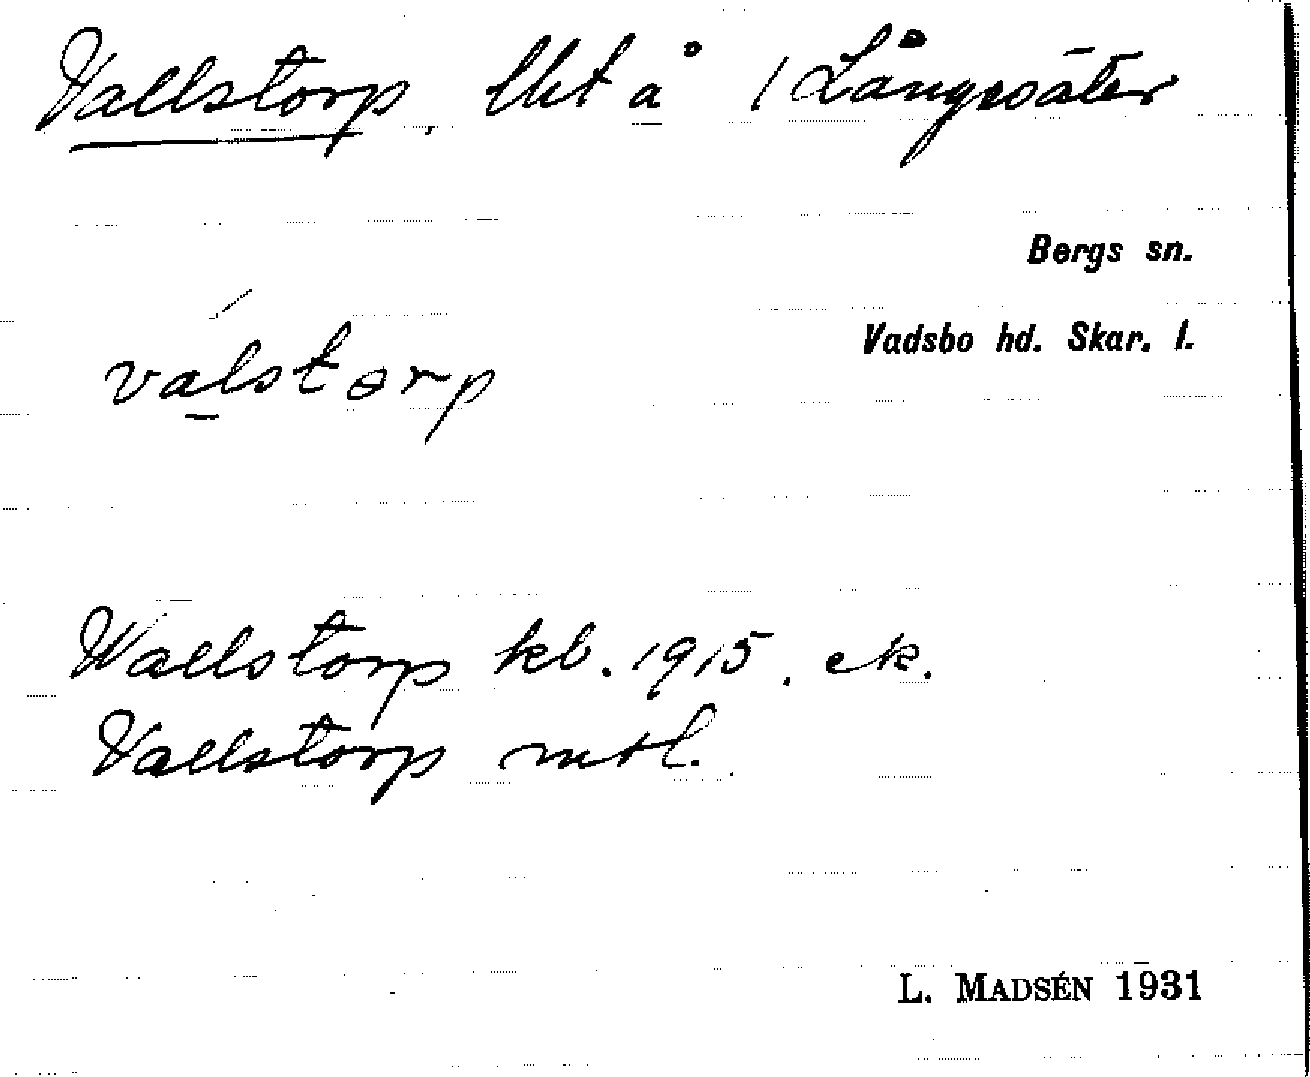 Vallstorp, lht å 1 Långesäter
Bergs sn.
Vadsbo hd. Skar. l.
va̲lstorp
Wallstorp kb. 1915. ek.
Vallstorp mtl.
L. MADSÉN 1931